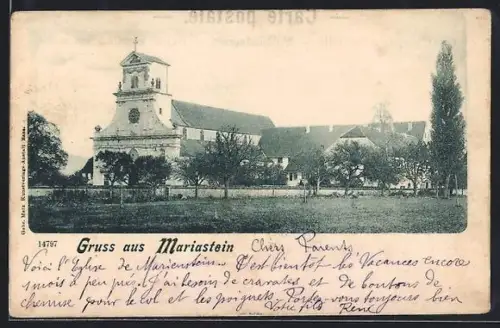 Carte postale.
Gebr. Metz, Kunstverlags-Anstalt, Basel.
14797
Gruss aus Mariastein
Chers Parents
Voici l'Eglise de Marienstein. C'est bientôt les Vacances encore
1 mois à peu près. J'ai besoins de cravates et de boutons de
chemise pour le col et les poignets. Portez vous toujours bien
Votre fils René